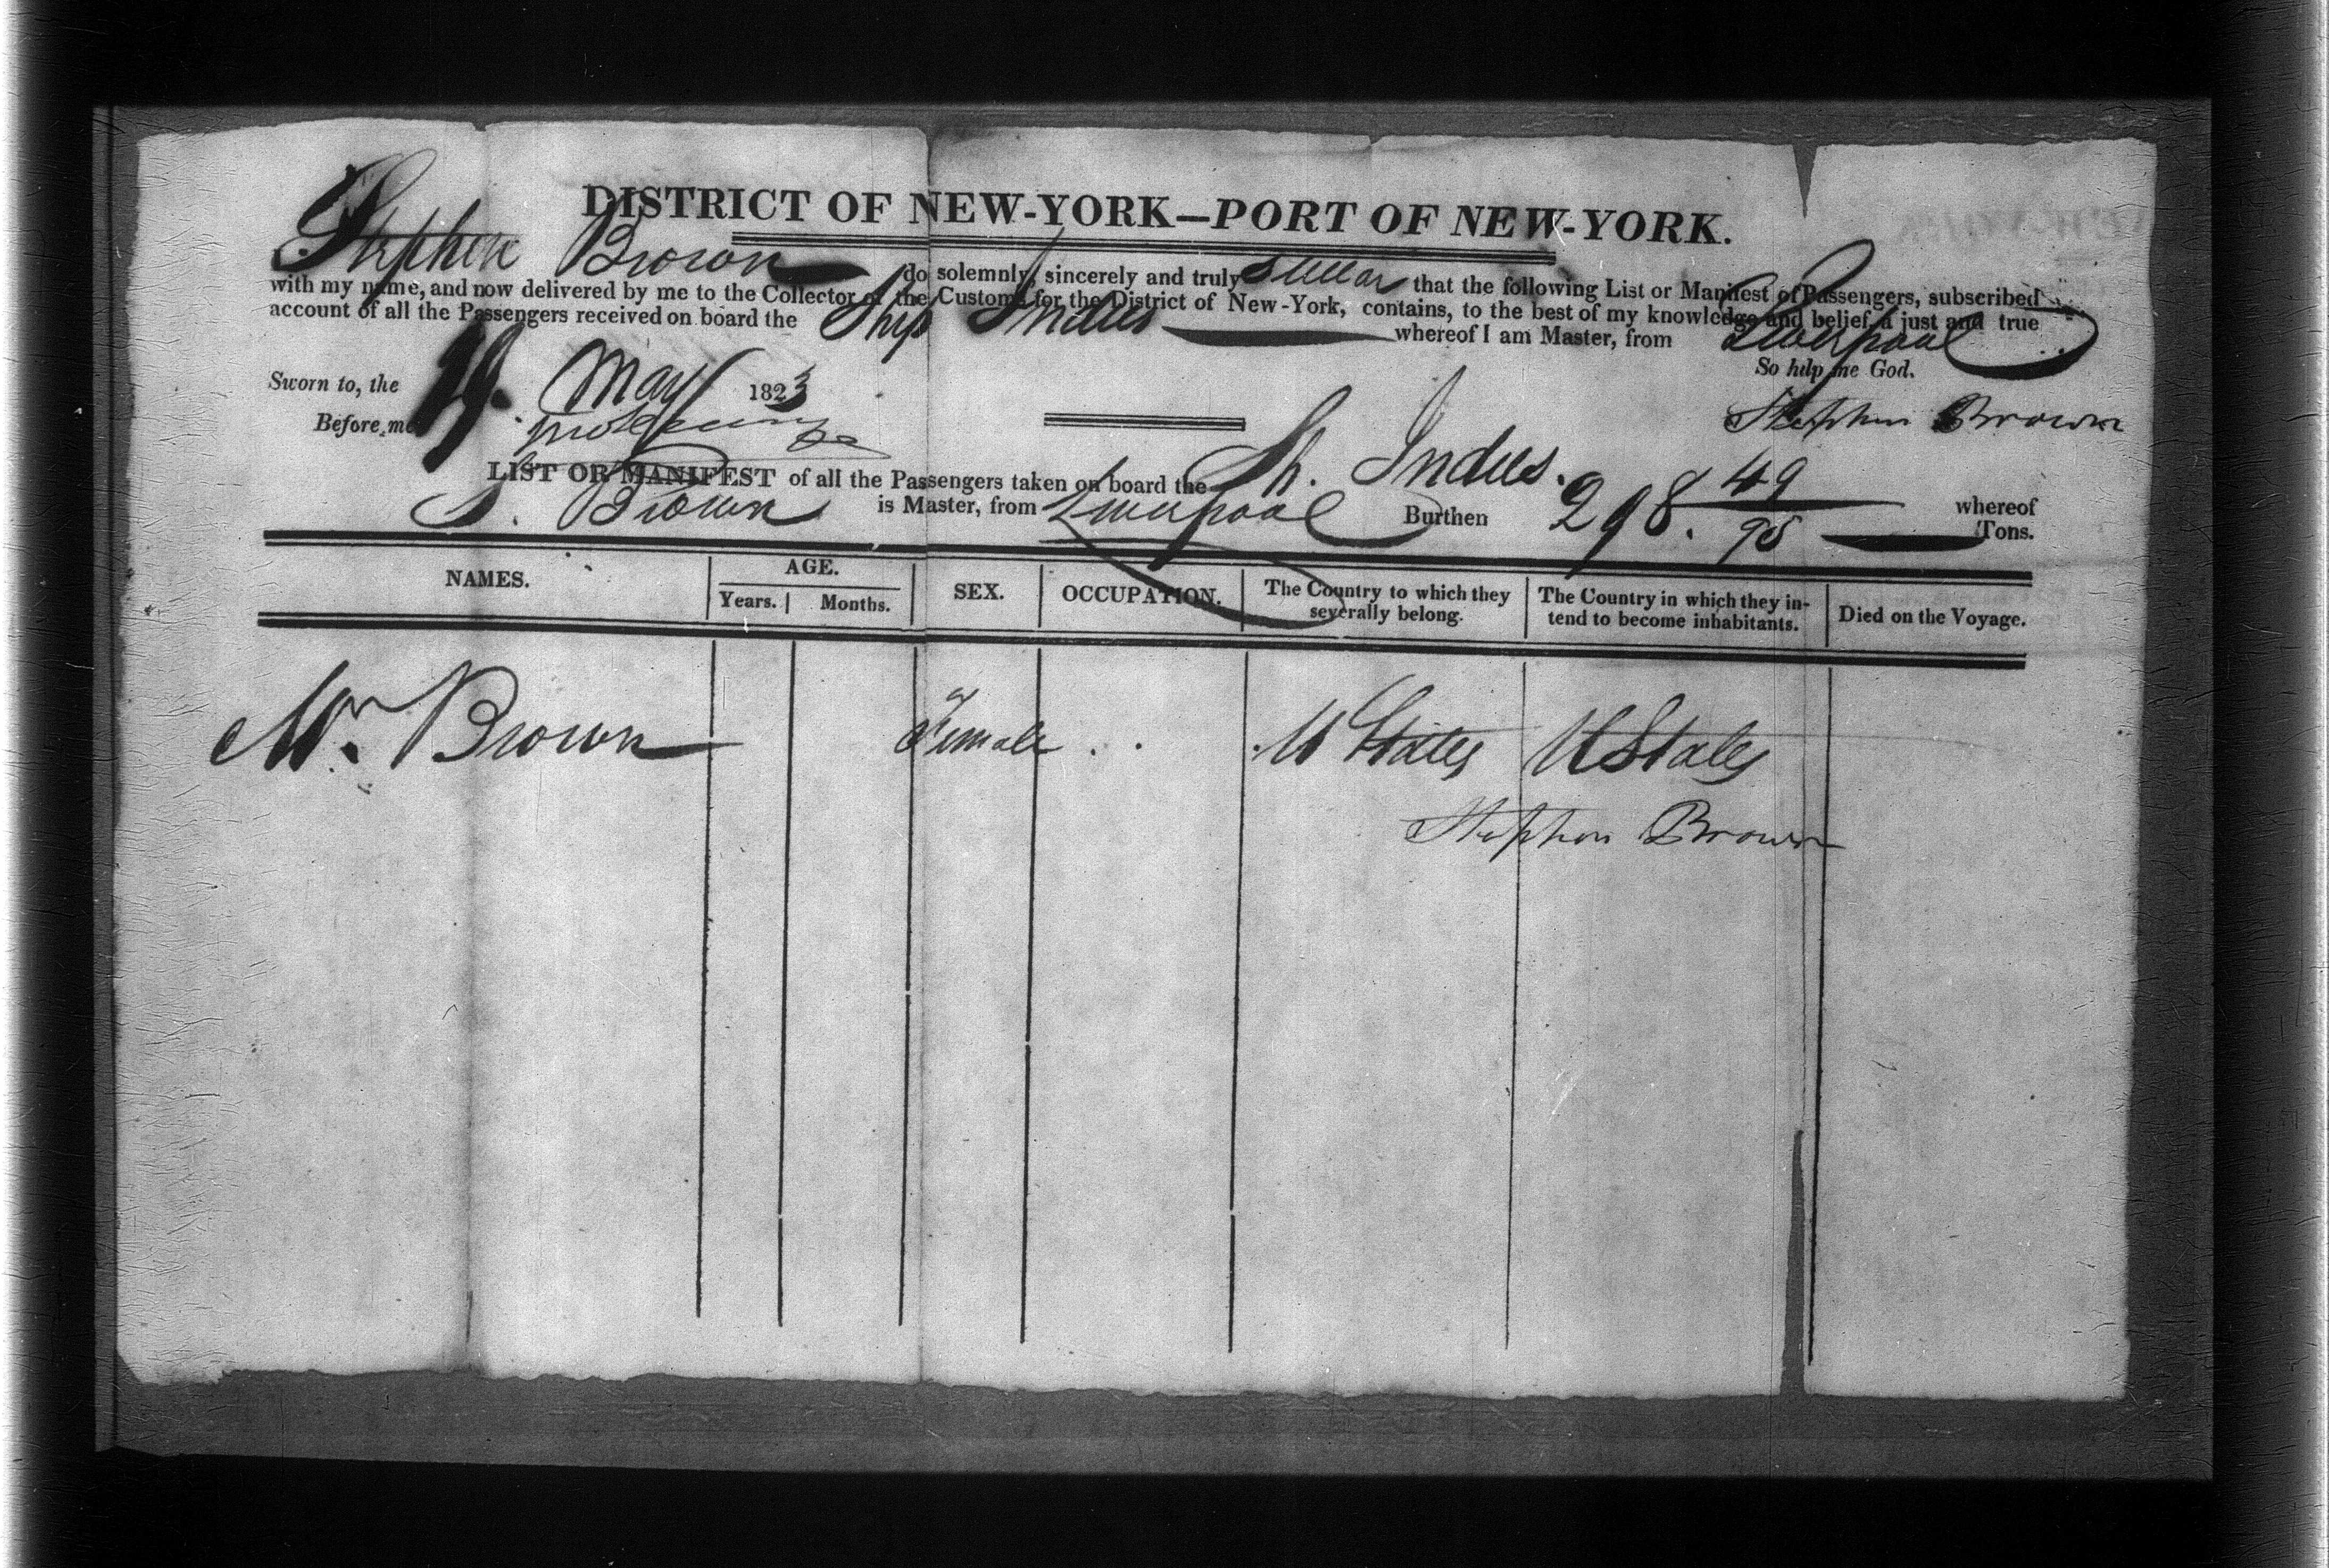 DISTRICT OF NEW-YORK—PORT OF NEW-YORK.
Stephen Brown do solemnly, sincerely and truly that the following List or Manifest of Passengers, subscribed
with my name, and now delivered by me to the Collector of the Customs for the District of New-York, contains, to the best of my knowledge and belief, a just and true
account of all the Passengers received on board the Ship Indus whereof I am Master, from Liverpool
So help me God.
Sworn to, the 19. May 1823
Before me
Stephen Brown
LIST OR MANIFEST of all the Passengers taken on board the Sh. Indus. whereof
S. Brown is Master, from Liverpool Burthen 298. 49/95 Tons.
NAMES. AGE. SEX. OCCUPATION. The Country to which they severally belong. The Country in which they intend to become inhabitants. Died on the Voyage.
Years. Months.
Brown Female U States U States
Stephen Brown